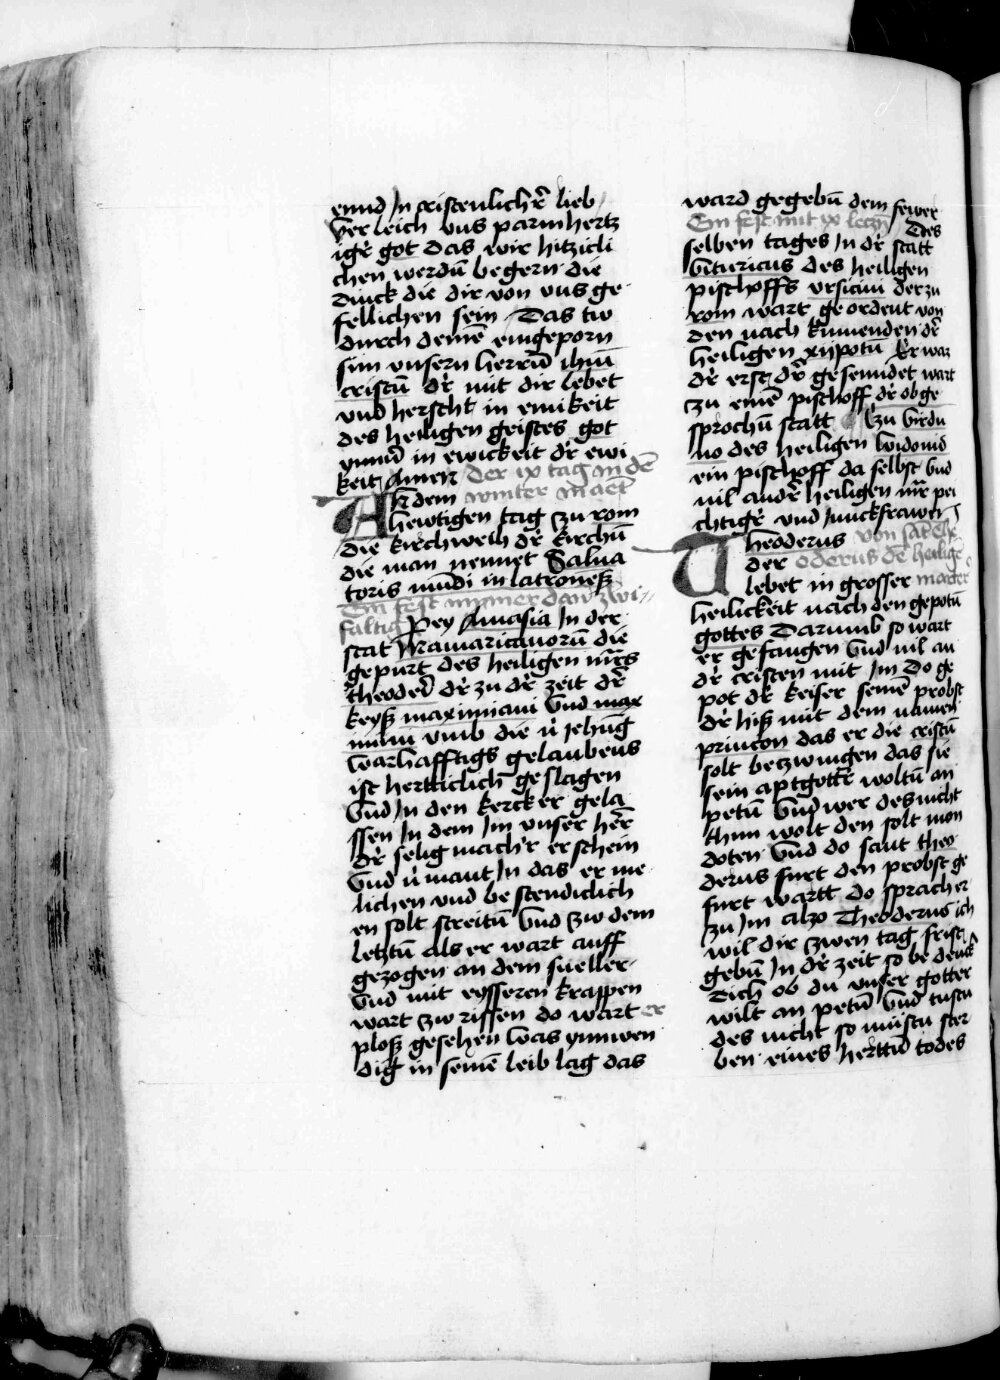 ennd Jn cristenlichr̄ lieb
Verleich vns parmhertz
igr̄ got das wir hitzicli
chen werdn̄ begern die
dinck die dir von vns ge
fellichen sein Das tw
durch deinē eingeporn
sun vnsern herrn̄ ihm̄
cristū dr̄ mit dir lebet
vnd herscht in emikeit
des heiligen geistes got
ymm̄ in ewickeit dr̄ ewi
keit Amen der ix tag in dē
An dem winter maēt
hewtigen tag zu rom
die kirchweih dr̄ kirchn̄
die man nennet Salua
toris mūdi in latroneß
Ein fest mynner dan zwi
faltig Pey Amasia Jn der
stat Mamaricanorū die
gepurt des heiligen mr̄s
theoderi dr̄ zu dr̄ zeit dr̄
keyß maximiani Vnd max
imini vmb die v̄iehūg
warhafftigs gelaubens
ist hertticlich geslagen
Vnd Jn den kercker gela
ssen Jn dem Jm vnser her̄
dr̄ selig mach'r erschein
Vnd v̄mant Jn das er me
lichen vnd bestendiclich
en solt streitn̄ Vnd zw dem
letztn̄ als er wart auff
gezogen an dem sneller
Vnd mit eysseren krappen
wart zw rissen do wart er
ploß gesehen was ynnwen
dig in seinē leib lag das
ward gegebn̄ dem fewer
Ein fest mit ix leczn̄ Des
selben tages Jn dr̄ statt
bituricus des heiligen
pischoffs vrsicini der zu
rom wart geordent von
den nach kumenden dr̄
heiligen xijpotn̄ Er waz
dr̄ erst dr̄ gesenndet wart
zu einē pischoff dr̄ obge
sprochn̄ statt Zu Virdu
no des heiligen Vidonid
ein pischoff da selbst Vnd
vil andr̄ heiligen mr̄r pei
chtigr̄ vnd Junckfrawen
Theoderus von sāt the
der oderus dē heilige
lebet in grosser marter
heilickeit nach den gepotn̄
gottes Darumb so wart
er gefangen Vnd vil an
dr̄ cristen mit Jm Do ge
pot dr̄ keiser seinē probst
dr̄ hiß mit dem namen
princon das er die cristn̄
solt betzwingen das sie
sein aptgottr̄ woltn̄ an
petn̄ Vnd wer des nicht
thun wolt den solt mon
doten Vnd do sant theo
derus furt den probst ge
furt wartt do sprach er
zu Jm alzo Theoderus ich
wil dir zwen tag frist
gebn̄ Jn dr̄ zeit so be denck
Dich ob du vnser gotter
wilt an petn̄ Vnd tustu
des nicht so mustu ster
ben eines herttn̄ todes